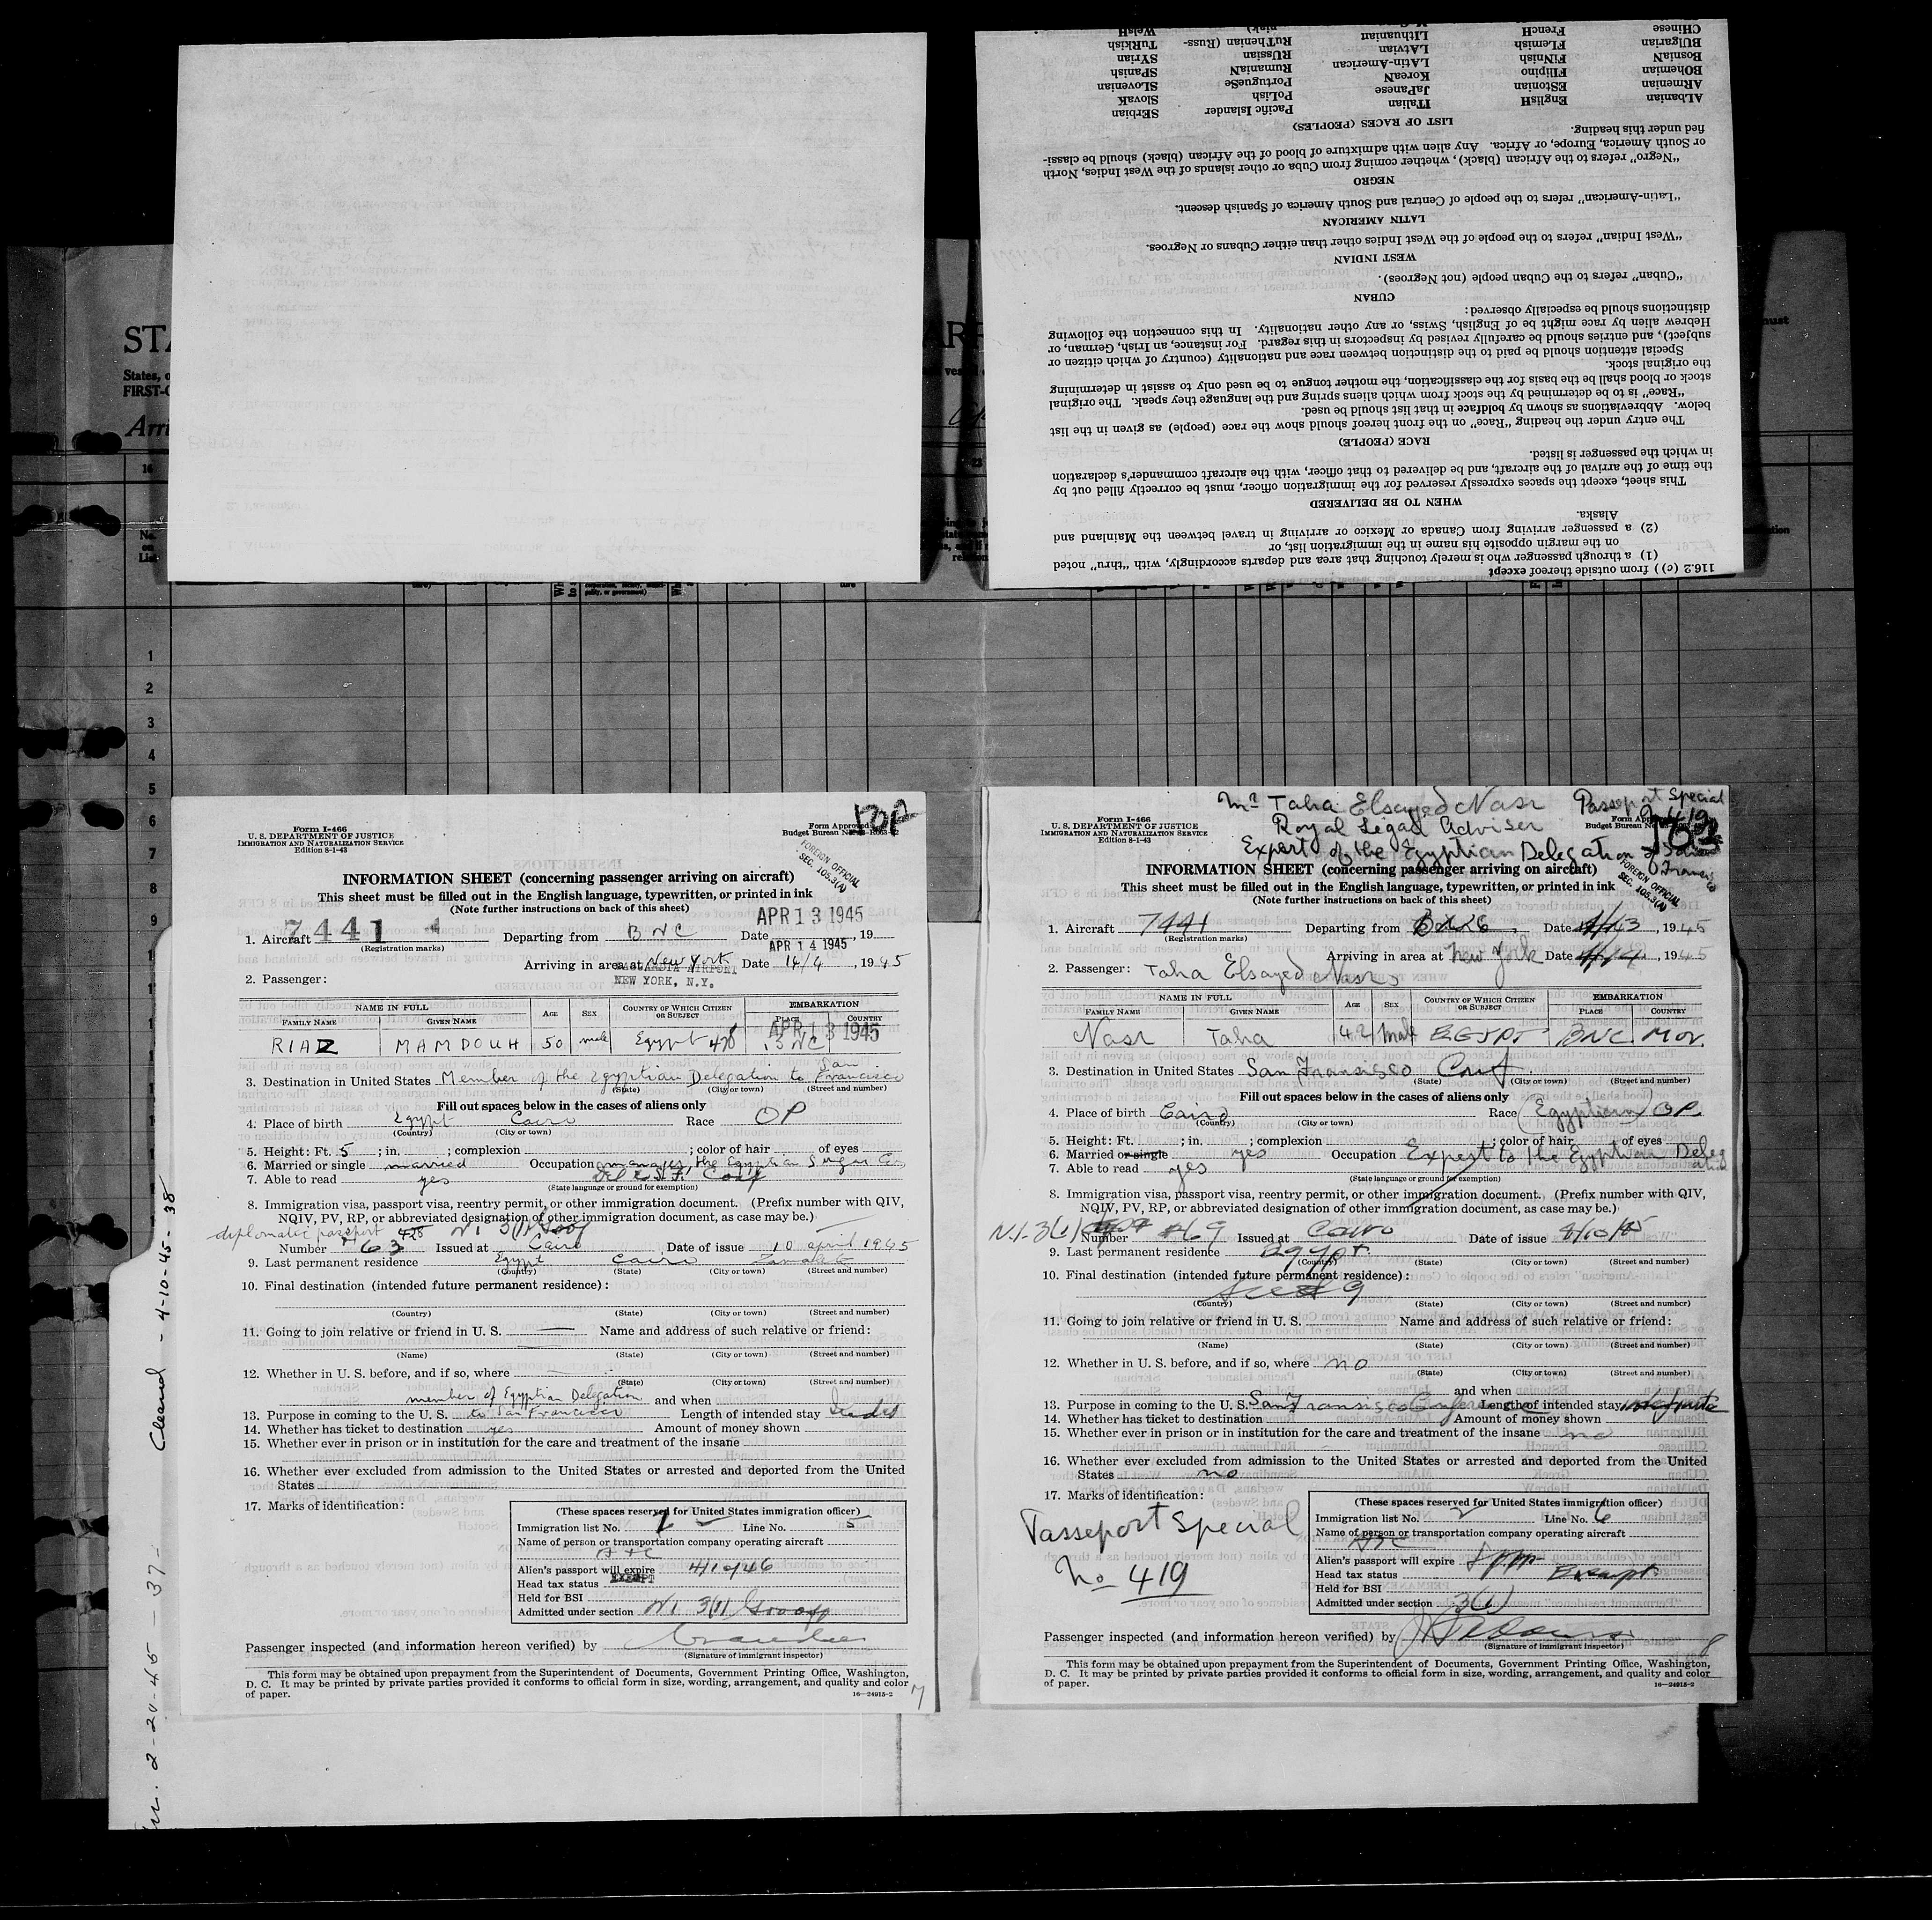 STA
States, o
FIRST-C
Arri
16
No.
on
List
1
2
3
4
5
6
7
8
9
Cleared - 4-10-45-38
2-20-45-37-
Form I-466
U. S. DEPARTMENT OF JUSTICE
IMMIGRATION AND NATURALIZATION SERVICE
Edition 8-1-43
Form Approved
FOREIGN OFFICIAL
SEC. 105.3(A)
INFORMATION SHEET (concerning passenger arriving on aircraft)
This sheet must be filled out in the English language, typewritten, or printed in ink
(Note further instructions on back of this sheet)
1. Aircraft 7441 Departing from BNC Date APR 13 1945, 19
(Registration marks)
APR 14 1945
Arriving in area at New York Date 14/4, 1945
LAGUARDIA AIRPORT
NEW YORK, N.Y.
2. Passenger:
NAME IN FULL AGE SEX COUNTRY OF WHICH CITIZEN OR SUBJECT EMBARKATION
FAMILY NAME GIVEN NAME PLACE COUNTRY
RIAZ MAMDOUH 50 male Egypt APR 13 1945 BNC
3. Destination in United States Member of the Egyptian Delegation to San Francisco
(State) (City or town) (Street and number)
Fill out spaces below in the cases of aliens only
4. Place of birth Egypt Cairo Race OP
(Country) (City or town)
5. Height: Ft. 5; in. ; complexion ; color of hair of eyes
6. Married or single married Occupation manager the Egyptian Sugar Co.
7. Able to read yes
(State language or ground for exemption)
8. Immigration visa, passport visa, reentry permit, or other immigration document. (Prefix number with QIV,
NQIV, PV, RP, or abbreviated designation of other immigration document, as case may be.)
diplomatic passport
Number 63 Issued at Cairo Date of issue 10 april 1945
9. Last permanent residence Egypt Cairo Zamalek
(Country) (State) (City or town) (Street and number)
10. Final destination (intended future permanent residence):
(Country) (State) (City or town) (Street and number)
11. Going to join relative or friend in U. S. Name and address of such relative or friend:
(Name) (State) (City or town) (Street and number)
12. Whether in U. S. before, and if so, where
(State) (City or town) (Street and number)
member of Egyptian Delegation and when
13. Purpose in coming to the U. S. to San Francisco Length of intended stay
14. Whether has ticket to destination yes Amount of money shown
15. Whether ever in prison or in institution for the care and treatment of the insane
16. Whether ever excluded from admission to the United States or arrested and deported from the United
States
17. Marks of identification:
(These spaces reserved for United States immigration officer)
Immigration list No. 2 Line No. 5
Name of person or transportation company operating aircraft
ATC
Alien's passport will expire
Head tax status EXEMPT
Held for BSI
Admitted under section 3(1)
Passenger inspected (and information hereon verified) by
(Signature of immigrant inspector)
This form may be obtained upon prepayment from the Superintendent of Documents, Government Printing Office, Washington,
D. C. It may be printed by private parties provided it conforms to official form in size, wording, arrangement, and quality and color
of paper.
16—24915-2
7
ALbanian EnglisH ITalian Pacific Islander SErbian
ARmenian EStonian JaPanese PoLish SlovaK
BOhemian FIlipino KoreaN PortugueSe SLOvenian
BosniaN FiNnish LAtin-American RumaniaN SPanish
BUlgarian FLemish LATvian RUssian SYrian
CHinese FrencH LIthuanian RuThenian (Russ- TuRkish
WelsH
LIST OF RACES (PEOPLES)
fied under this heading.
or South America, Europe, or Africa. Any alien with admixture of blood of the African (black) should be classi-
"Negro" refers to the African (black), whether coming from Cuba or other islands of the West Indies, North
NEGRO
"Latin-American" refers to the people of Central and South America of Spanish descent.
LATIN AMERICAN
"West Indian" refers to the people of the West Indies other than either Cubans or Negroes.
WEST INDIAN
"Cuban" refers to the Cuban people (not Negroes).
CUBAN
distinctions should be especially observed:
Hebrew alien by race might be of English, Swiss, or any other nationality. In this connection the following
subject), and entries should be carefully revised by inspectors in this regard. For instance, an Irish, German, or
Special attention should be paid to the distinction between race and nationality (country of which citizen or
the original stock.
stock or blood shall be the basis for the classification, the mother tongue to be used only to assist in determining
"Race" is to be determined by the stock from which aliens spring and the language they speak. The original
below. Abbreviations as shown by boldface in that list should be used.
The entry under the heading "Race" on the front hereof should show the race (people) as given in the list
RACE (PEOPLE)
in which the passenger is listed.
the time of the arrival of the aircraft, and be delivered to that officer, with the aircraft commander's declaration
This sheet, except the spaces expressly reserved for the immigration officer, must be correctly filled out by
WHEN TO BE DELIVERED
Alaska.
(2) a passenger arriving from Canada or Mexico or arriving in travel between the Mainland and
on the margin opposite his name in the immigration list, or
(1) a through passenger who is merely touching that area and departs accordingly, with "thru" noted
116.2 (c) ) from outside thereof except
Mr Taha Elsayed Nasr Passeport Special
Royal Legal Adviser No 419
Expert of the Egyptian Delegation
Form I-466
U. S. DEPARTMENT OF JUSTICE
IMMIGRATION AND NATURALIZATION SERVICE
Edition 8-1-43
FOREIGN OFFICIAL
SEC. 105.3(A)
INFORMATION SHEET (concerning passenger arriving on aircraft)
This sheet must be filled out in the English language, typewritten, or printed in ink
(Note further instructions on back of this sheet)
1. Aircraft 7441 Departing from Date 4/13, 1945
(Registration marks)
Arriving in area at New York Date, 1945
2. Passenger: Taha Elsayed Nasr
NAME IN FULL AGE SEX COUNTRY OF WHICH CITIZEN OR SUBJECT EMBARKATION
FAMILY NAME GIVEN NAME PLACE COUNTRY
Nasr Taha 42 Male EGYPT BNC Mor.
3. Destination in United States San Fransisco Conf.
(State) (City or town) (Street and number)
Fill out spaces below in the cases of aliens only
4. Place of birth Cairo Race (Egyptian) OP
(Country) (City or town)
5. Height: Ft. ; in. ; complexion ; color of hair of eyes
6. Married or single yes Occupation Expert to the Egyptian Delegation
7. Able to read yes
(State language or ground for exemption)
8. Immigration visa, passport visa, reentry permit, or other immigration document. (Prefix number with QIV,
NQIV, PV, RP, or abbreviated designation of other immigration document, as case may be.)
Number Issued at Cairo Date of issue
9. Last permanent residence Egypt
(Country) (State) (City or town) (Street and number)
10. Final destination (intended future permanent residence):
(Country) (State) (City or town) (Street and number)
11. Going to join relative or friend in U. S. Name and address of such relative or friend:
(Name) (State) (City or town) (Street and number)
12. Whether in U. S. before, and if so, where no
(State) (City or town) (Street and number)
and when
13. Purpose in coming to the U. S. San Fransisco Conference Length of intended stay
14. Whether has ticket to destination Amount of money shown
15. Whether ever in prison or in institution for the care and treatment of the insane no
16. Whether ever excluded from admission to the United States or arrested and deported from the United
States no
17. Marks of identification:
Passeport Special
No 419
(These spaces reserved for United States immigration officer)
Immigration list No. 2 Line No. 6
Name of person or transportation company operating aircraft
ATC
Alien's passport will expire
Head tax status Exempt
Held for BSI
Admitted under section 3(1)
Passenger inspected (and information hereon verified) by
(Signature of immigrant inspector)
8
This form may be obtained upon prepayment from the Superintendent of Documents, Government Printing Office, Washington,
D. C. It may be printed by private parties provided it conforms to official form in size, wording, arrangement, and quality and color
of paper.
16—24915-2